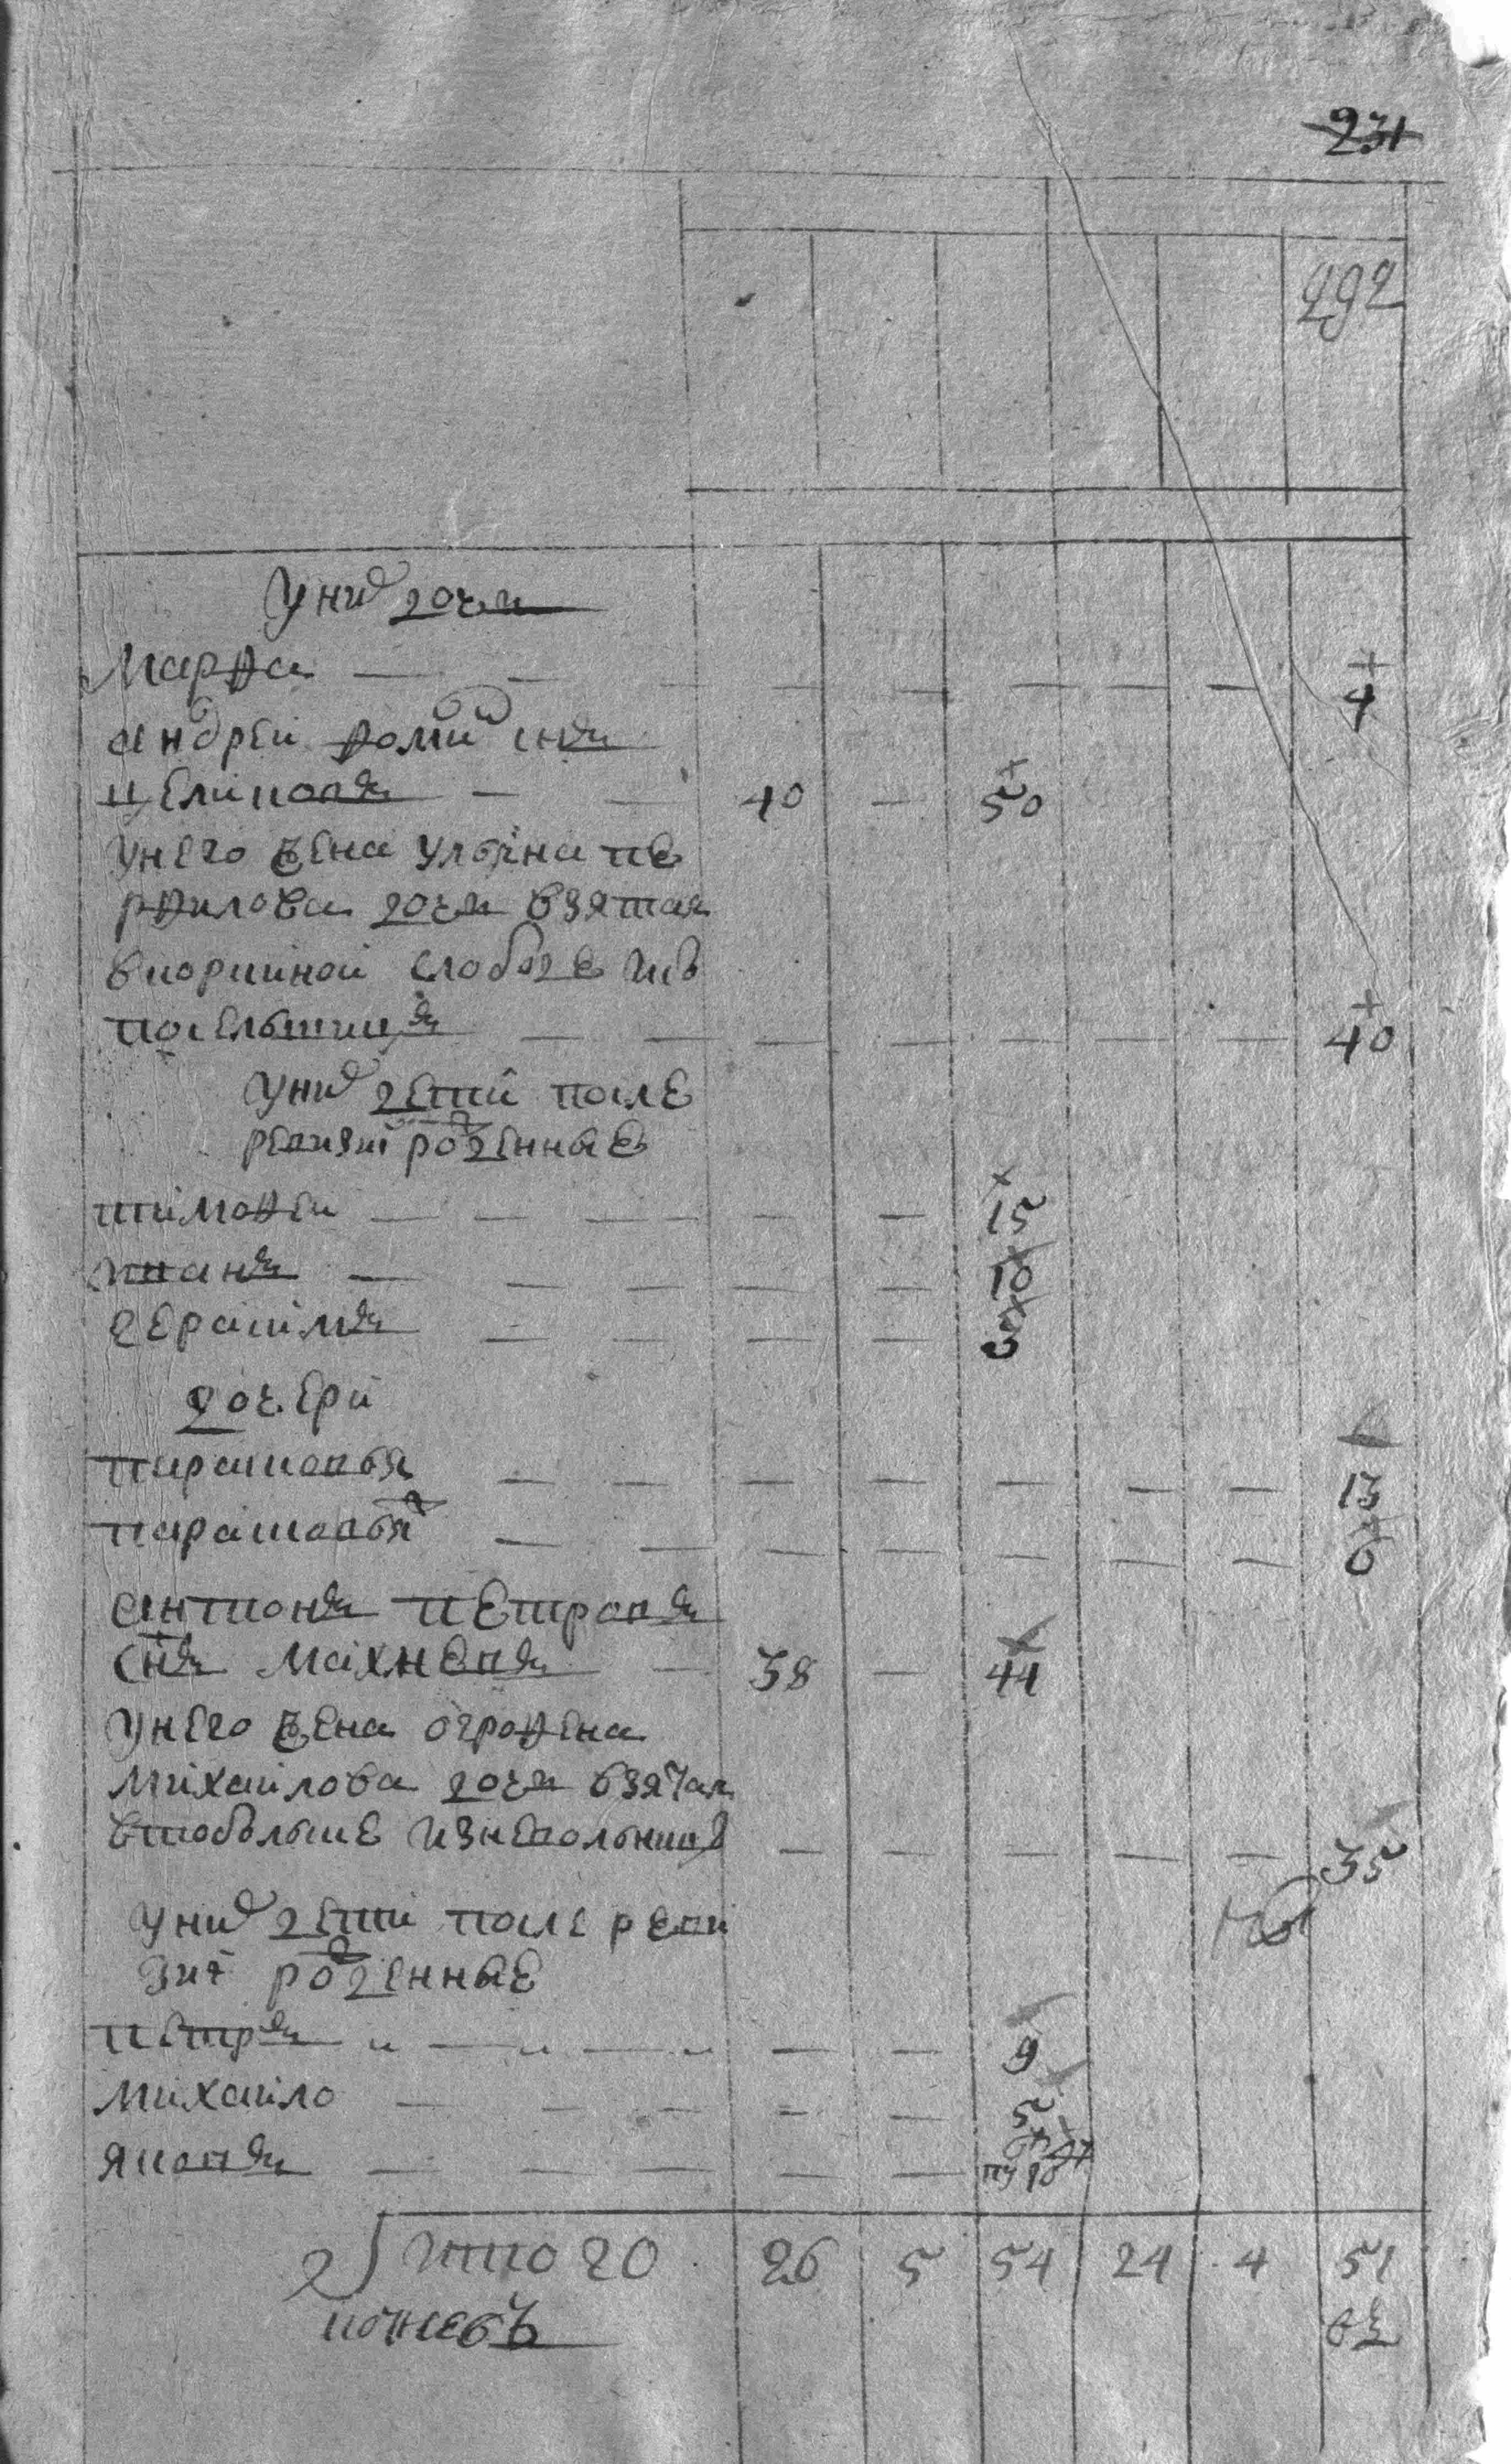 231
292
У них дочь
Марфа — — — — — — — 4
андреи фомин снъ
целиковъ — — 40 — 50
У него жена ульяна пе
рфилова дочь взятая
в коркиной слободе ис
посельщиковъ — — — — — — — 40
У них дети после
ревизи рожденные
тимофеи — — — — — 15
иванъ — — — — 10
герасимъ — — — — 3
дочери
парасковья — — — — — — — 13
парасковья — — — — — — — 6
антонъ петровъ
снъ махневъ — 38 — 44
У него жена огрофена
михаилова дочь взятая
в тобольске из невольниковъ — — — — — 35
У них дети после реви
зиі рожденные
петръ — — — — 9
михаило — — — — — 5
яковъ — — — — —
итого 26 5 54 24 4 51